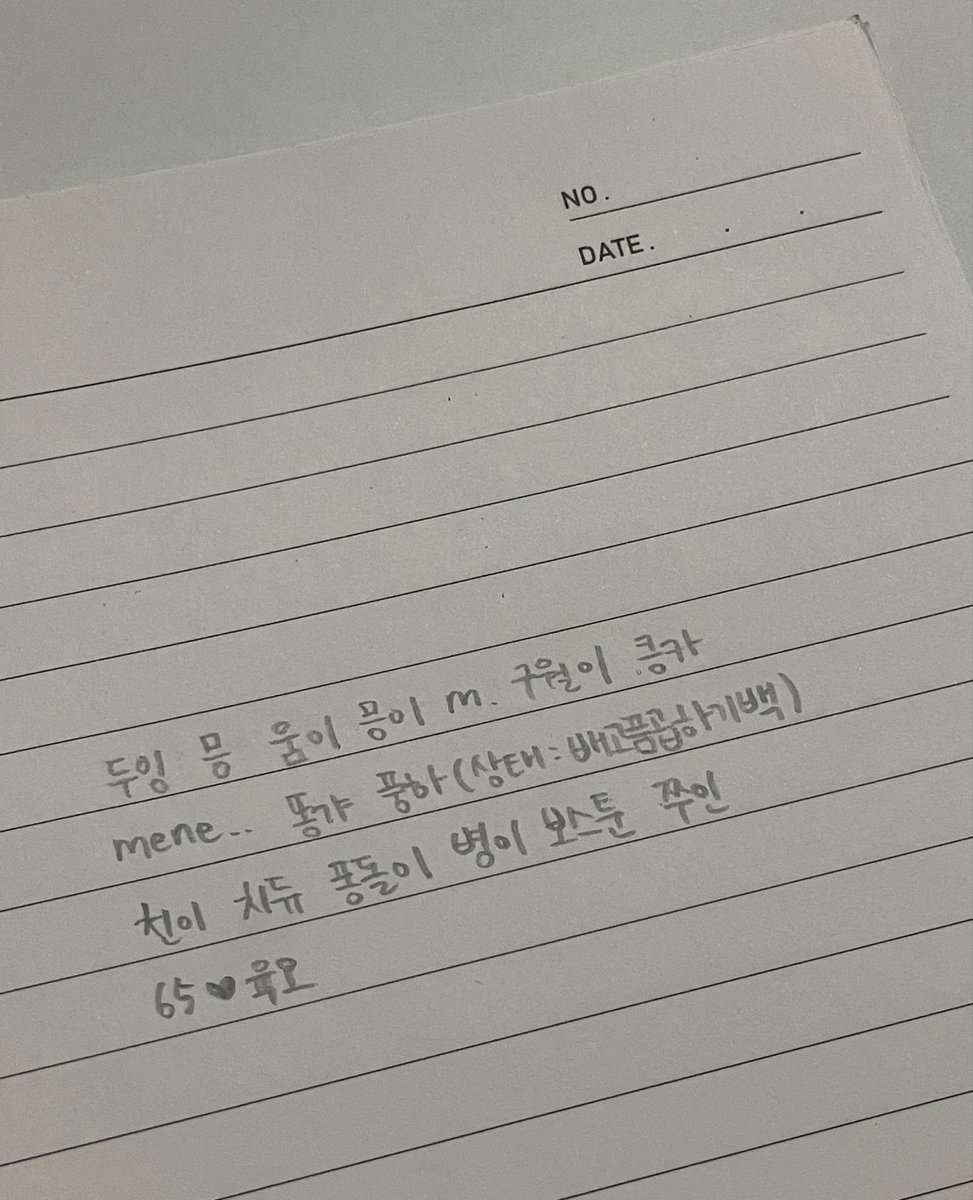 NO.
DATE. . .
두잉 믕 움이 믕이 m. 구월이 킁카
mene.. 똥갸 풍하(상태:배고픔곱하기백)
친이 치듀 퐁돌이 병이 보스툰 쭈인
65♥육오